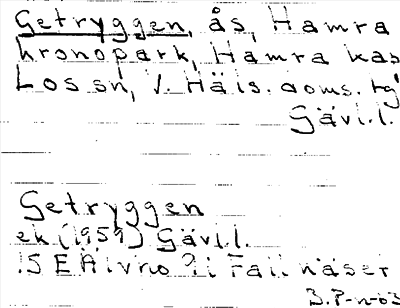 Getryggen, ås, Hamra
kronopark, Hamra kbs
Los sn, V. Häls. doms. tg
Gävl.l.
Getryggen
ek (1959) Gävl.l.
SE Älvho i Fall näset